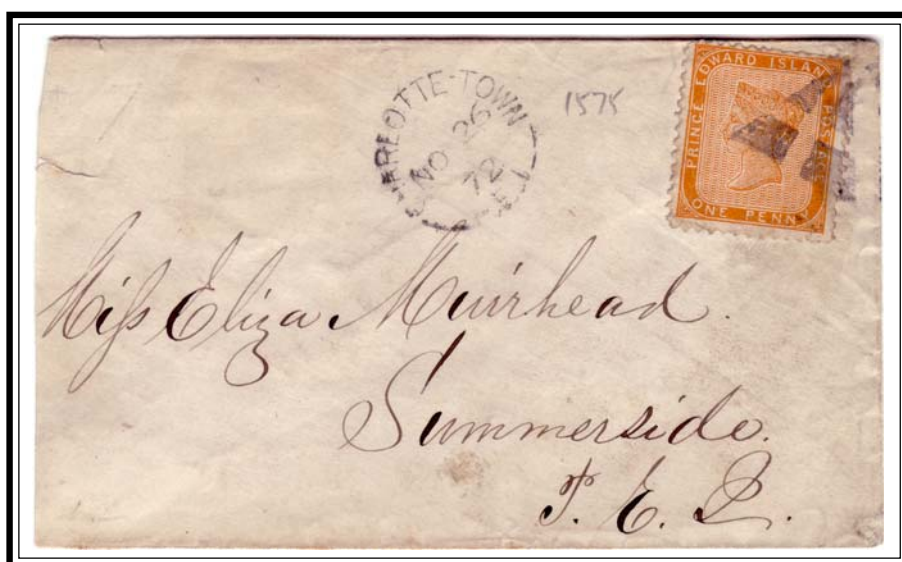 CHARLOTTE-TOWN
NO 26
72
1575
PRINCE EDWARD ISLAND POSTAGE
ONE PENNY
Miss Eliza Muirhead.
Summerside.
P. E. I.